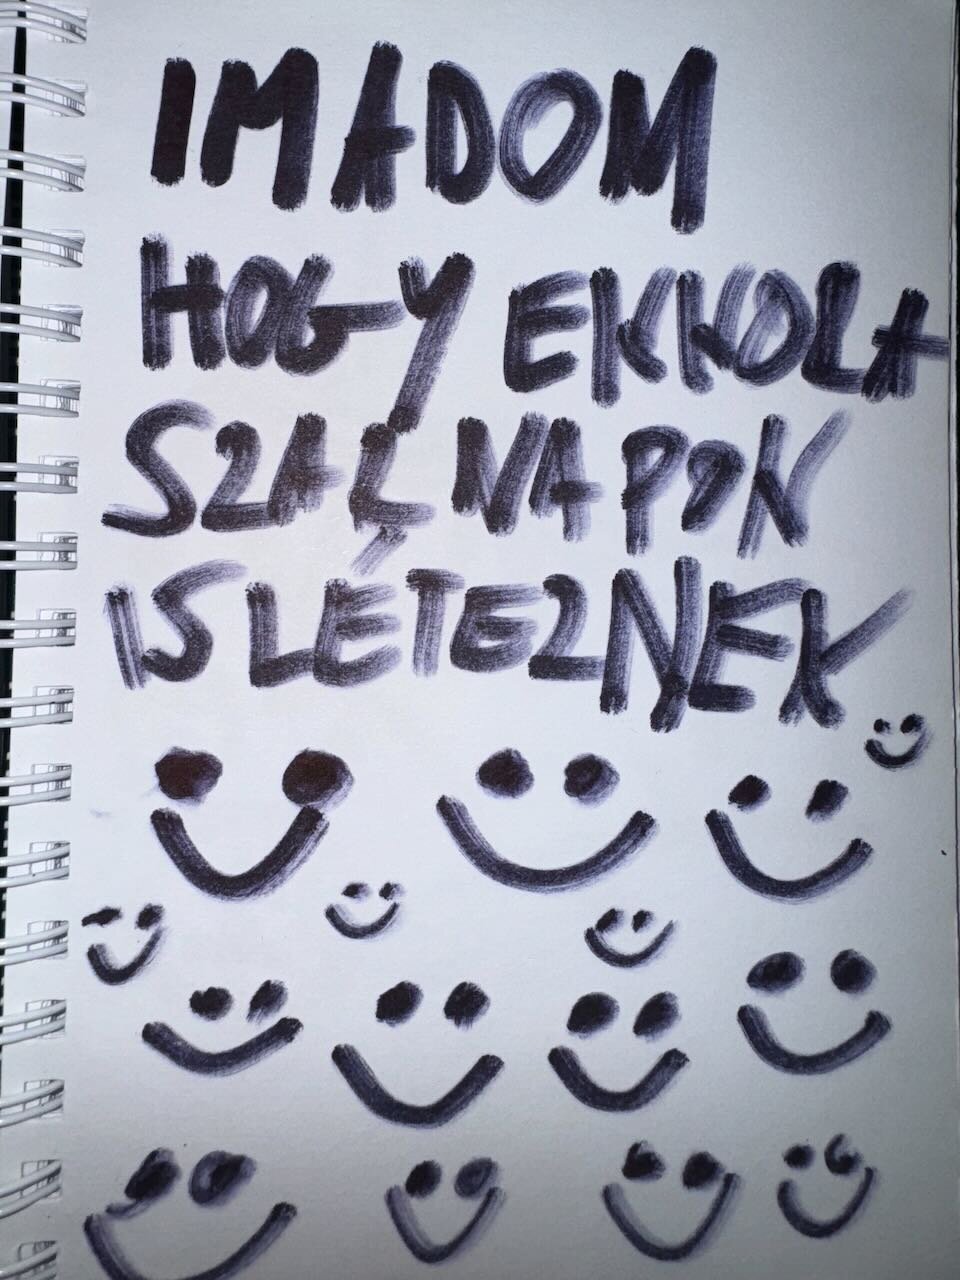 IMADOM
HOGY EKKOLA
SZAL NAPOK
IS LÉTEZNEK